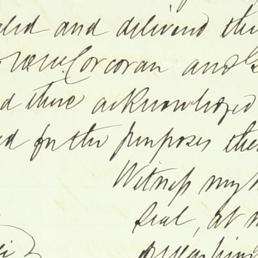 and delivered the
Wm. Corcoran and G
d there acknowledged
ed for the purposes the
Witness my
Seal, at